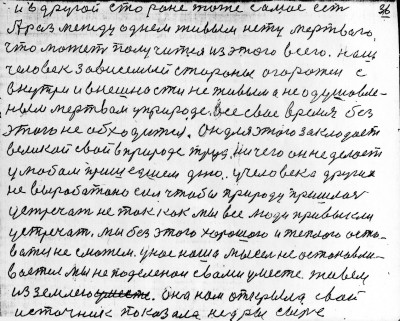 и в другой стороне тоже самое ест 36
А раз между однем живым нету мертваго,
что может получится из этого всего. наш
человек зависемый стороны огорожен с
внутри и внешности не живым а не одушовле-
ным мертвам у природе. Все свое время без
этого не обходится. Он для этого закладает
великой свой в природе труд, ничего он не делает
у любом пришедшем дню. у человека других
не выработано сил чтобы природу пришлаю
устречат не так как мы все люди привыкли
устречат. мы без этого хорошого и теплого оста-
ватьне сможем. у нас наша мысел не остановли-
вается мы не поделеном свами уместе. живем
из землею она нам открыла свой
источник показала недры сырье